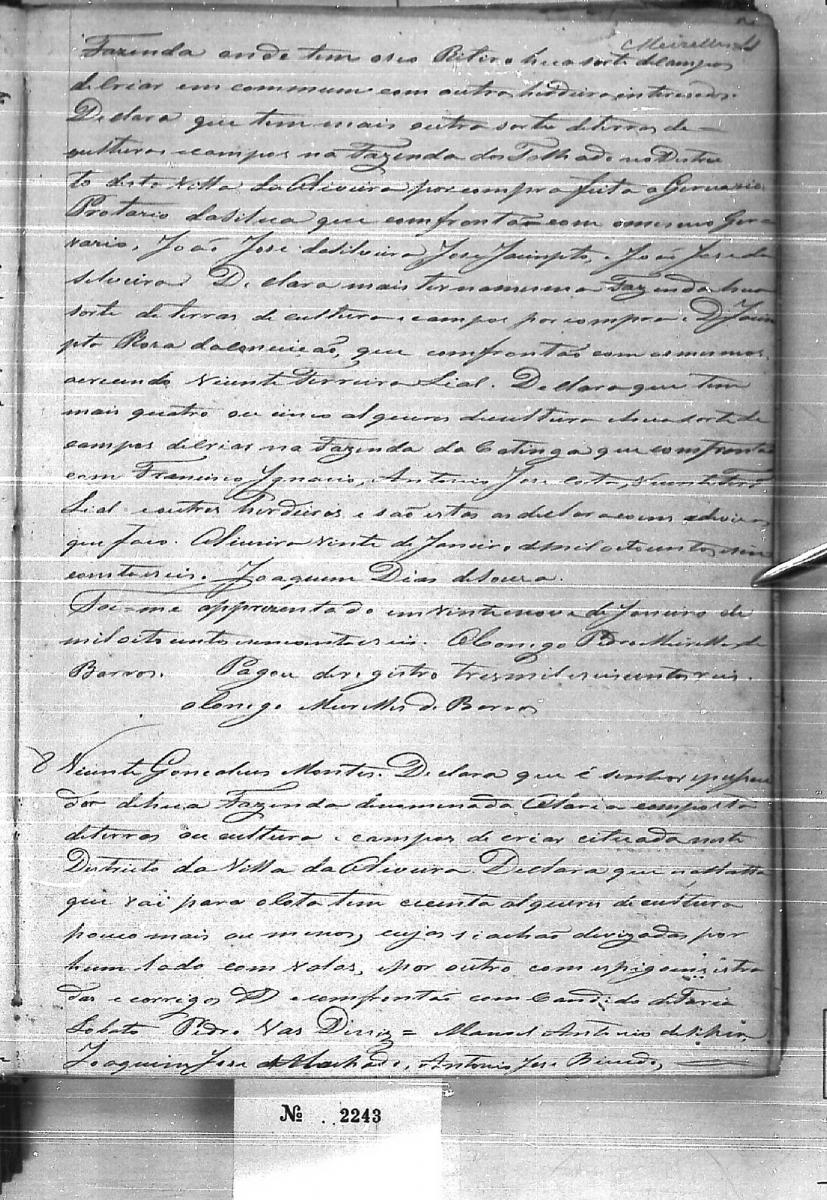 Meirelles 4
Fazenda onde tem o seo Retiro hua sorte de campos
de criar em commum com outros herdeiros interessados.
Declara que tem mais outra sorte de terras de
culturas e campos na Fazenda dos Talhados no Distric
to desta Villa da Oliveira por compra feita a Gervazio
Protazio da Silva que confrontão com o mesmo Ger
vazio, João José da Silveira José Jacinpto, e João José da
Silveira. Declara mais ter na mesma Fazenda hua
sorte de terras de cultura e campos por compra a D. Jacin
pto Rosa da Conceicão, que comfrontão com os mesmos
acrecendo Vicente Ferreira Lial. Declara que tem
mais quatro ou cinco alqueires de cultura e hua sorte de
campos de criar na Fazenda da Catinga que comfrontão
com Francisco Ignacio, Antonio José Costa, Vicente Ferrª
Lial e outros herdeiros e são estas as declaracoens
que faco. Oliveira vinte de Janeiro de mil oito centos e cin
coenta e seis. Joaquim Dias de Souza.
Foi-me apprezentado em vinte nove de Janeiro de
mil oito centos e cincoenta e seis. O Conego Pedro Meirelles de
Barros. Pagou de registro tres mil e seis centos reis.
o Conego Meirelles de Barros
8 Vicente Goncalves Montes. Declara que é senhor e possui
dor de hua Fazenda denominada Olaria composta
de terras de cultura e campos de criar cituada neste
Districto da Villa da Oliveira. Declara que na
que vai para o lota tem cincoenta alqueires de cultura
pouco mais ou menos, cujas se achão divizadas por
hum lado com valos, e por outro com espigoens estra
das e corrigos e comfrontão com Candido de Faria
Lobato Pedro Vas Diniz = Manoel Antonio da Silva
Joaquim José Machado, Antonio José
Nº 2243